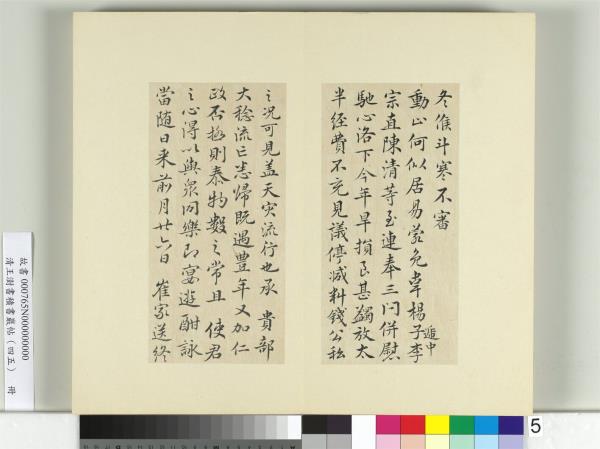 冬候斗寒不審
動止何似居易蒙免韋楊子李
遞中
宗直陳清等至連奉三問併慰
馳心洛下今年旱損至甚蠲放太
半經費不充見議停減料錢公私
之況可見蓋天災流行也承 貴部
大稔流亡悉歸既過豐年又加仁
政否極則泰物數之常且 使君
之心得以與眾同樂即宴遊酣詠
當隨日來前月廿六日 崔家送終
故書 000765N000000000
清王澍書積書巖帖（四五） 冊
5